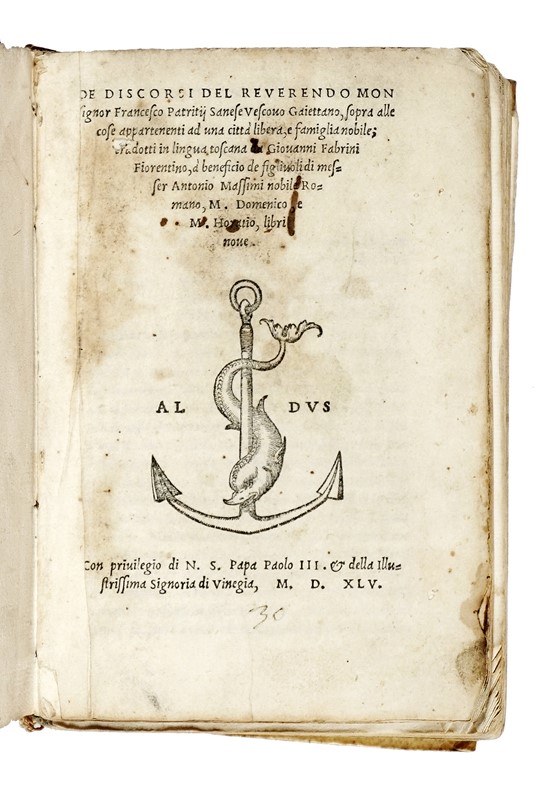 DE DISCORSI DEL REVERENDO MON
signor Francesco Patritij Sanese Vescouo Gaiettano, sopra alle
cose appartenenti ad una città libera, e famiglia nobile;
tradotti in lingua toscana da Giouanni Fabrini
Fiorentino, à beneficio de figliuoli di mes=
ser Antonio Massimi nobile Ro=
mano, M. Domenico e
M. Horatio, libri
noue.
AL DVS
Con priuilegio di N. S. Papa Paolo III. & della Illu=
strissima Signoria di Vinegia, M. D. XLV.
30